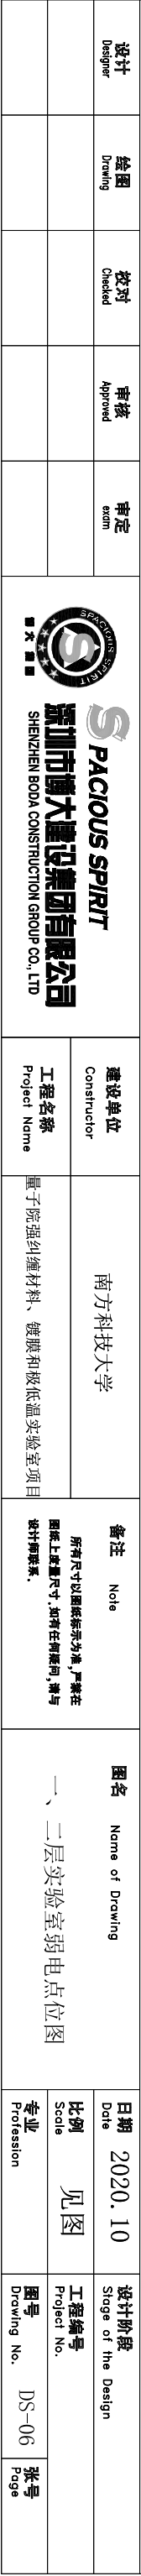 设计
Designer
绘图
Drawing
校对
Checked
审核
Approved
审定
exam
SPACIOUS SPIRIT
S
博大建设
SPACIOUS SPIRIT
深圳市博大建设集团有限公司
SHENZHEN BODA CONSTRUCTION GROUP CO., LTD
建设单位
Constructor
南方科技大学
工程名称
Project Name
量子院强纠缠材料、镀膜和极低温实验室项目
备注 Note
所有尺寸以图纸标示为准,严禁在
图纸上度量尺寸.如有任何疑问,请与
设计师联系.
图名 Name of Drawing
一、二层实验室弱电点位图
日期
Date
2020.10
比例
Scale
见图
专业
Profession
设计阶段
Stage of the Design
工程编号
Project No.
图号
Drawing No.
DS-06
张号
Page